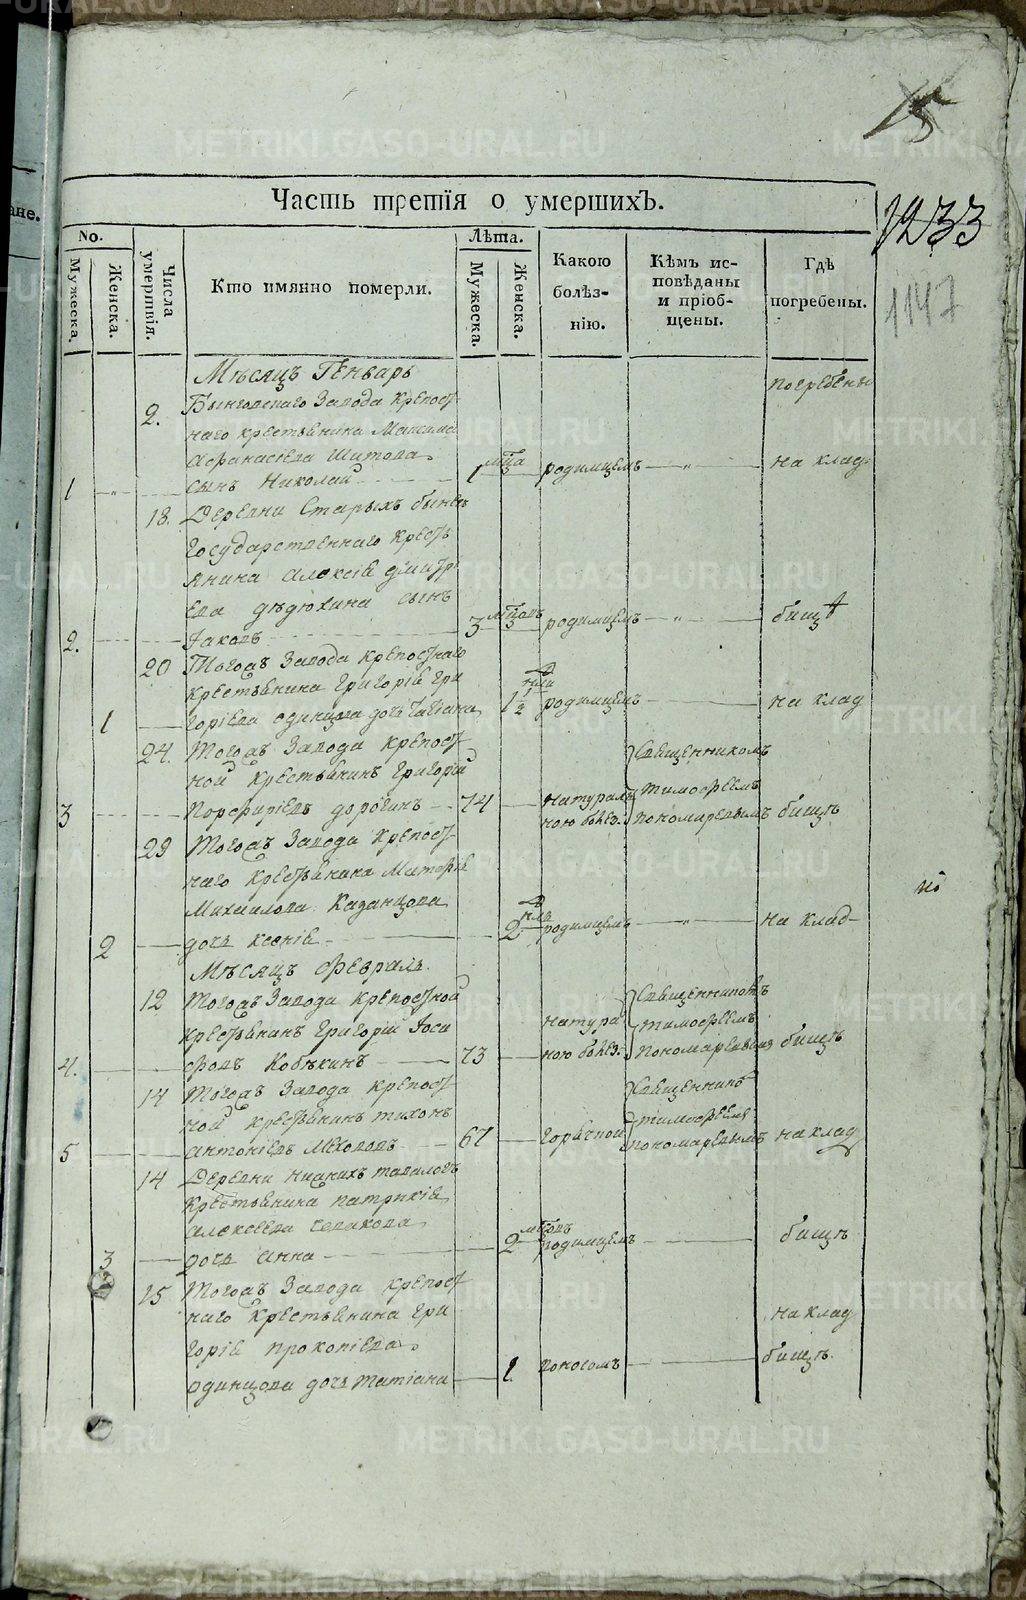 15
Часть третія о умершихъ.
1233
1147
No.
Мужеска.
Женска.
Числа умертвія.
Кто имянно померли.
Лѣта.
Мужеска.
Женска.
Какою болѣз-нію.
Кѣмъ ис-повѣданы и пріоб-щены.
Гдѣ погребены.
Мѣсяцъ Генварь
погребены
2. Быньговскаго Завода крепост
наго крестьянина Максима
Афанасіева Шитова
1 сынъ Николай 1 мца родимцемъ на клад
18. Деревни Старыхъ бынегъ
государственнаго кресть
янина Алексія дмитр
ева дѣдюхина сынъ
2. Іаковъ 3 родимцемъ бищѣ
20 Тогожъ Завода крепостнаго
крестьянина Григорія Гри
1 горіева одинцова дочь Татіана 1 1/2 нли родимцемъ на клад
24. Тогожъ Завода крепост
ной крестьянинъ Григорій
Священникомъ
3 Порфиріевъ дорогинъ 74 натураль
ною болѣз. Тимофеемъ
Пономаревымъ бищѣ
29 Тогожъ Завода крепост
наго крестьянина Матфія
Михаилова Казанцова
2 дочь Ксенія 2 нли родимцемъ на клад
Мѣсяцъ Февраль.
12 Тогожъ Завода крепостной
крестьянинъ Григорій Іоси
4. фовъ Кобякинъ 73 натура
ною болѣз. Тимофеемъ
Пономаревымъ бищѣ
14 Тогожъ Завода крепост
ной крестьянинъ тихонъ
5 антоніевъ Меховъ 67 горячкой Тимофеемъ
Пономаревымъ на клад
14 Деревни нижнихъ тавологъ
крестьянина патрикія
алексеева
3 дочь Анна 2 родимцемъ бищѣ
15 Тогожъ Завода крепост
наго крестьянина Гри
горія прокопіева на клад
одинцова дочь татіана 1 поносомъ бищѣ.
METRIKI.GASO-URAL.RU